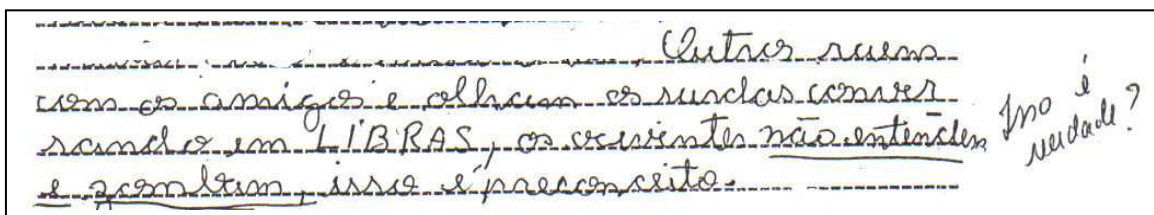 Outros riem
com os amigos e olham os surdos conver
sando em LIBRAS, os ouvintes não entendem
e zombam, isso é preconceito.
Isso é
verdade?